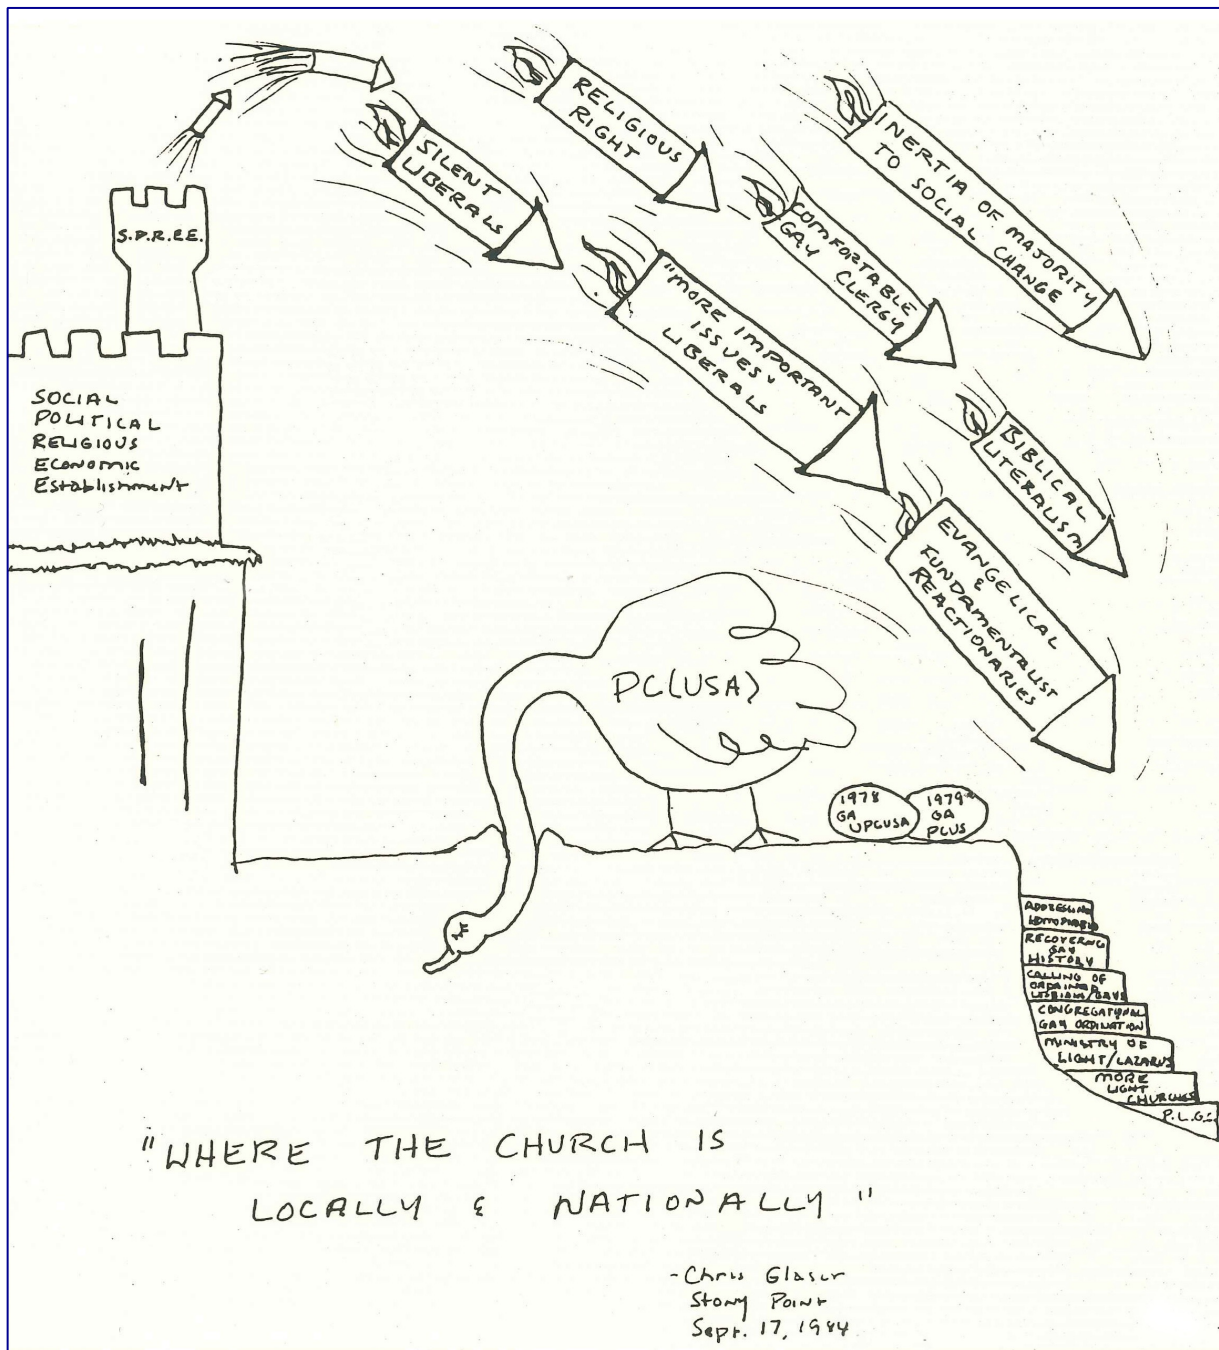 S.P.R.E.E.
SOCIAL
POLITICAL
RELIGIOUS
ECONOMIC
Establishment
SILENT
LIBERALS
RELIGIOUS
RIGHT
INERTIA OF MAJORITY
TO SOCIAL CHANGE
"MORE IMPORTANT
ISSUES"
LIBERALS
COMFORTABLE
GAY CLERGY
BIBLICAL
LITERALISM
EVANGELICAL
&
FUNDAMENTALIST
REACTIONARIES
PC(USA)
1978
GA
UPCUSA
1979
GA
PCUS
ADDRESSING
HOMOPHOBIA
RECOVERING
GAY
HISTORY
CALLING OF
ORDAINED
LESBIANS/GAYS
CONGREGATIONAL
GAY ORDINATION
MINISTRY OF
LIGHT/LAZARUS
MORE
LIGHT
CHURCHES
P.L.G.C.
"WHERE THE CHURCH IS
LOCALLY & NATIONALLY"
-Chris Glaser
Stony Point
Sept. 17, 1984